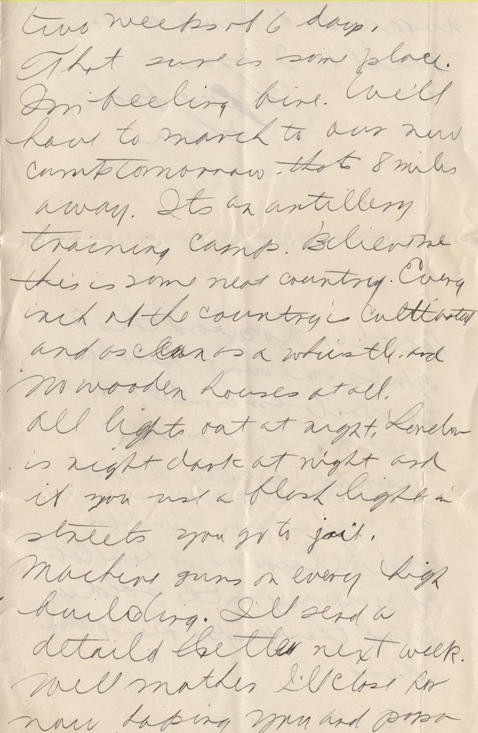 two weeks of 6 days.
That sure is some place.
Im feeling fine. We'll
have to march to our new
camp tomorrow. thats 8 miles
away. Its an artillery
training camp. Believe me
this is some neat country. Every
inch of the country is cultivated
and as clean as a whistle. and
No wooden houses at all.
All lights out at night. London
is night dark at night and
if you use a flash light in
streets you go to jail.
Machine guns on every high
building. I'll send a
detaild letter next week.
Well mother I'll close for
now hoping you and papa